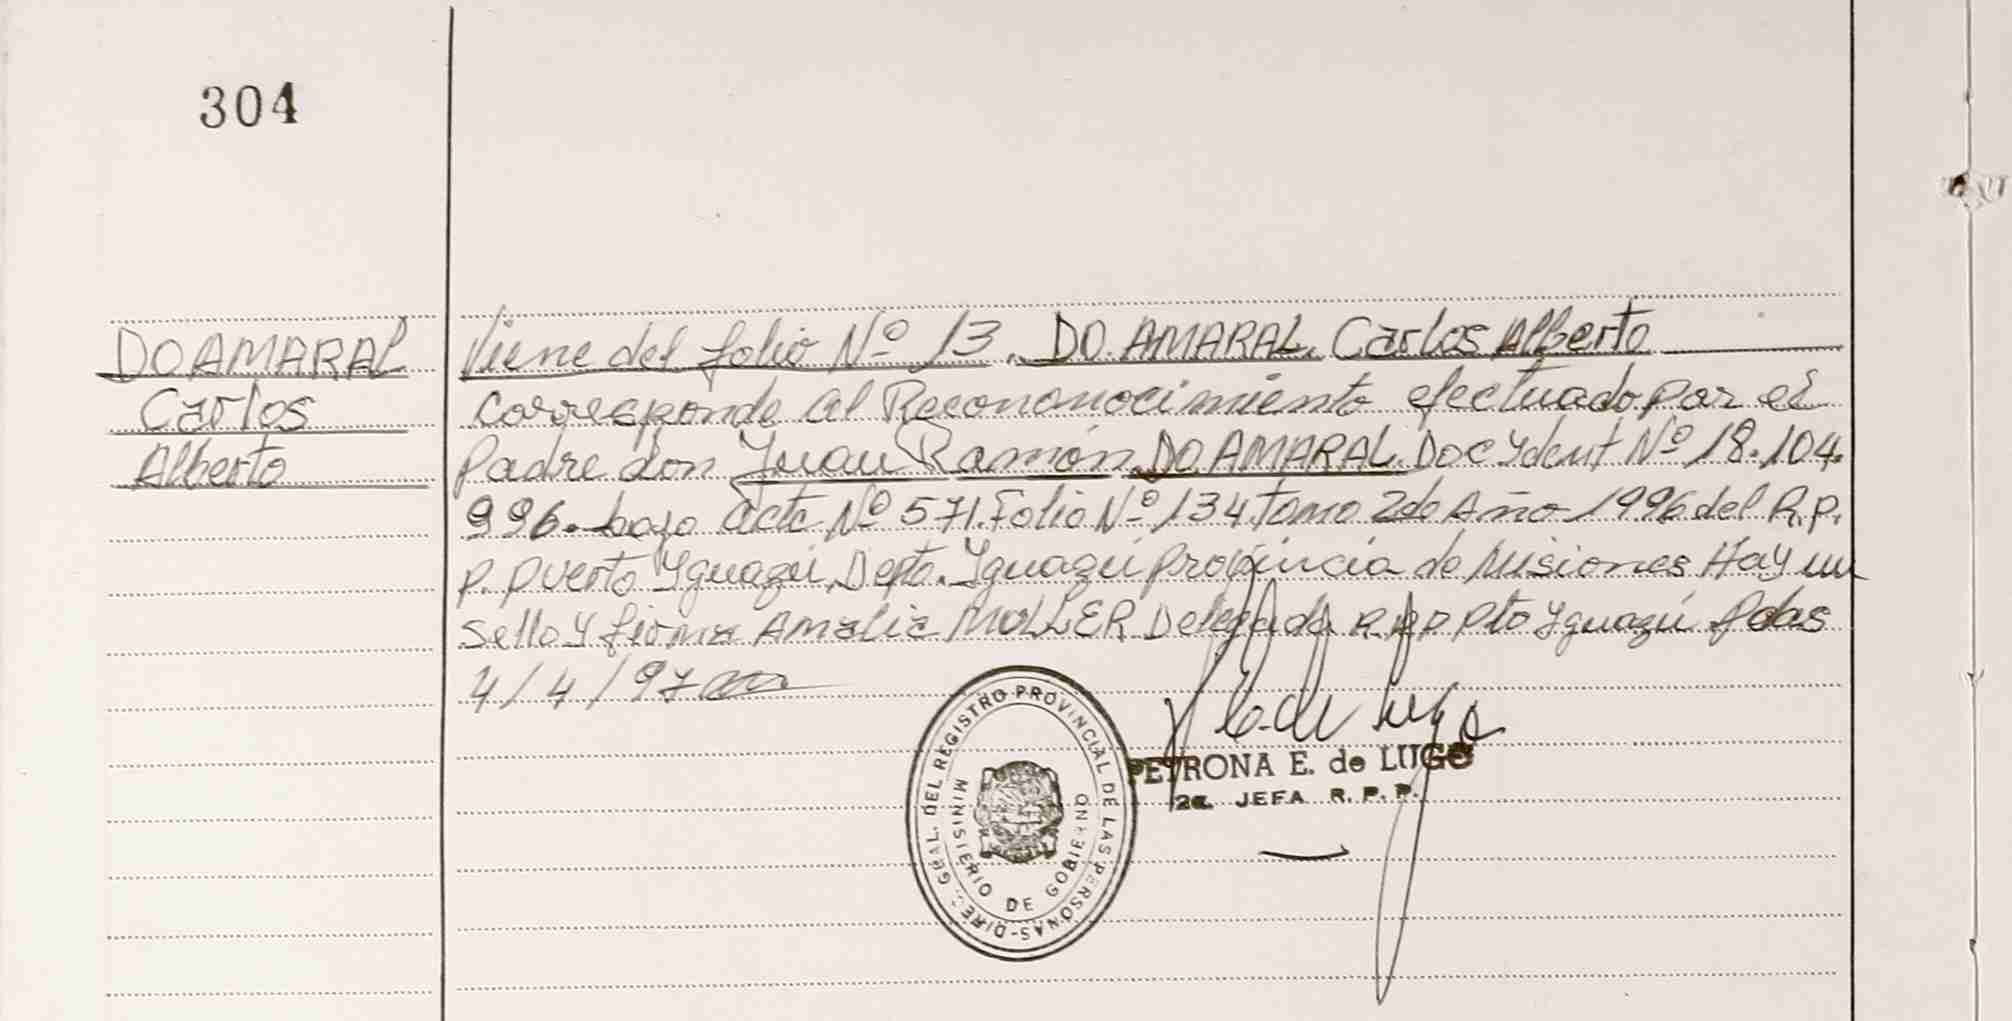 304
DO AMARAL
Carlos
Alberto
Viene del folio Nº 13. DO. AMARAL. Carlos Alberto
corresponde al Recononocimiento efectuado por el
Padre don Juan Ramón DO AMARAL. Doc Ydent Nº 18.104.
996. bajo acta Nº 571. Folio Nº 134 tomo 2do Año 1996 del R.P.
P. Puerto Yguazú, Depto. Yguazú provincia de Misiones Hay un
sello y firma Amalia MULLER Delegada R.P.P Pto Yguazú Pdas
4/4/97
PETRONA E. de LUGO
2a. JEFA R. P. P.
DIREC. GRAL. DEL REGISTRO PROVINCIAL DE LAS PERSONAS-
MINISTERIO DE GOBIERNO